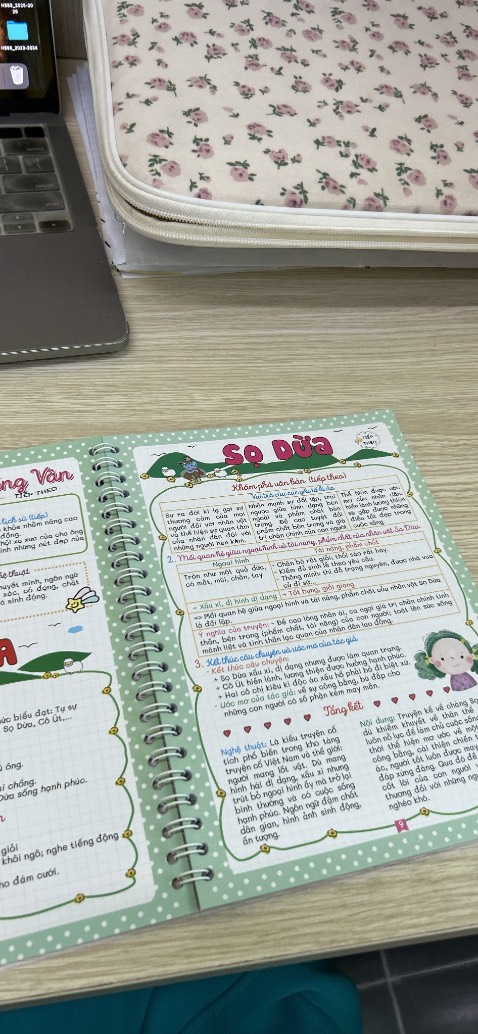 Sọ Dừa
TIẾP THEO
Khám phá văn bản (tiếp theo)
Vai trò của các yếu tố kì ảo
Sự ra đời kì lạ gợi sự
thương cảm của mọi
người đối với nhân vật
và thể hiện sự quan tâm
của nhân dân đối với
những người kém
Nhấn mạnh sự đối lập
ngoại hình và phẩm chất bên
trong. Đề cao tuyệt đối
phẩm chất bên trong và giá
trị chân chính của con người
cuộc sống.
2. Mối quan hệ giữa ngoại hình và tài năng, phẩm chất của nhân vật Sọ Dừa
Ngoại hình
Tròn như một quả dừa,
có mắt, mũi, chân, tay
Tài năng, phẩm chất
- Chăn bò rất giỏi; thổi sáo rất hay.
- Kiếm đủ sính lễ theo yêu cầu.
- Thông minh thi đỗ trạng nguyên, được nhà vua
cử đi sứ,...
- Xấu xí, dị hình dị dạng
- Tốt bụng, giỏi giang
=> Mối quan hệ giữa ngoại hình và tài năng, phẩm chất của nhân vật Sọ Dừa
là đối lập.
Ý nghĩa của truyện: - Đề cao lòng nhân ái, ca ngợi giá trị chân chính tinh
thần, bên trong (phẩm chất, tài năng) của con người, toát lên sức sống
mãnh liệt và tinh thần lạc quan của nhân dân lao động.
3. Kết thúc câu chuyện và ước mơ của tác giả
- Kết thúc câu chuyện:
+ Sọ Dừa xấu xí, dị dạng nhưng được làm quan trạng.
+ Cô Út hiền lành, lương thiện được hưởng hạnh phúc.
+ Hai cô chị kiêu kì độc ác xấu hổ phải bỏ đi biệt xứ.
- Ước mơ của tác giả: về sự công bằng, bù đắp cho
những con người có số phận kém may mắn.
Tổng kết
Nghệ thuật: Là kiểu truyện cổ
tích phổ biến trong kho tàng
truyện cổ Việt Nam và thế giới:
người mang lốt vật. Dù mang
hình hài dị dạng, xấu xí nhưng
trút bỏ ngoại hình ấy mà trở lại
bình thường và có cuộc sống
hạnh phúc. Ngôn ngữ đậm chất
dân gian, hình ảnh sinh động,
ấn tượng.
Nội dung: Truyện kể về chàng Sọ
dù khiếm khuyết về thân thể
luôn nỗ lực để làm chủ cuộc sống
thời thể hiện mơ ước về một
công bằng, cái thiện chiến
ác, người tốt luôn được may
đáp xứng đáng. Qua đó đề
cốt lõi của con người
thương đối với những người
nghèo khó.
9
ng Vân
TIẾP THEO
tích sử (tiếp)
khỏe nhằm nâng cao
đồng.
hội xư xưa của cha ông
ình những nét đẹp của
hệ thuật
huyết minh, ngôn ngữ
xác, cô đọng, chất
à sinh động.
A
ức biểu đạt: Tự sự
Sọ Dừa, Cô Út,...
ú ông.
i chồng.
Dừa sống hạnh phúc.
giỏi
khôi ngô; nghe tiếng động
ho đám cưới.